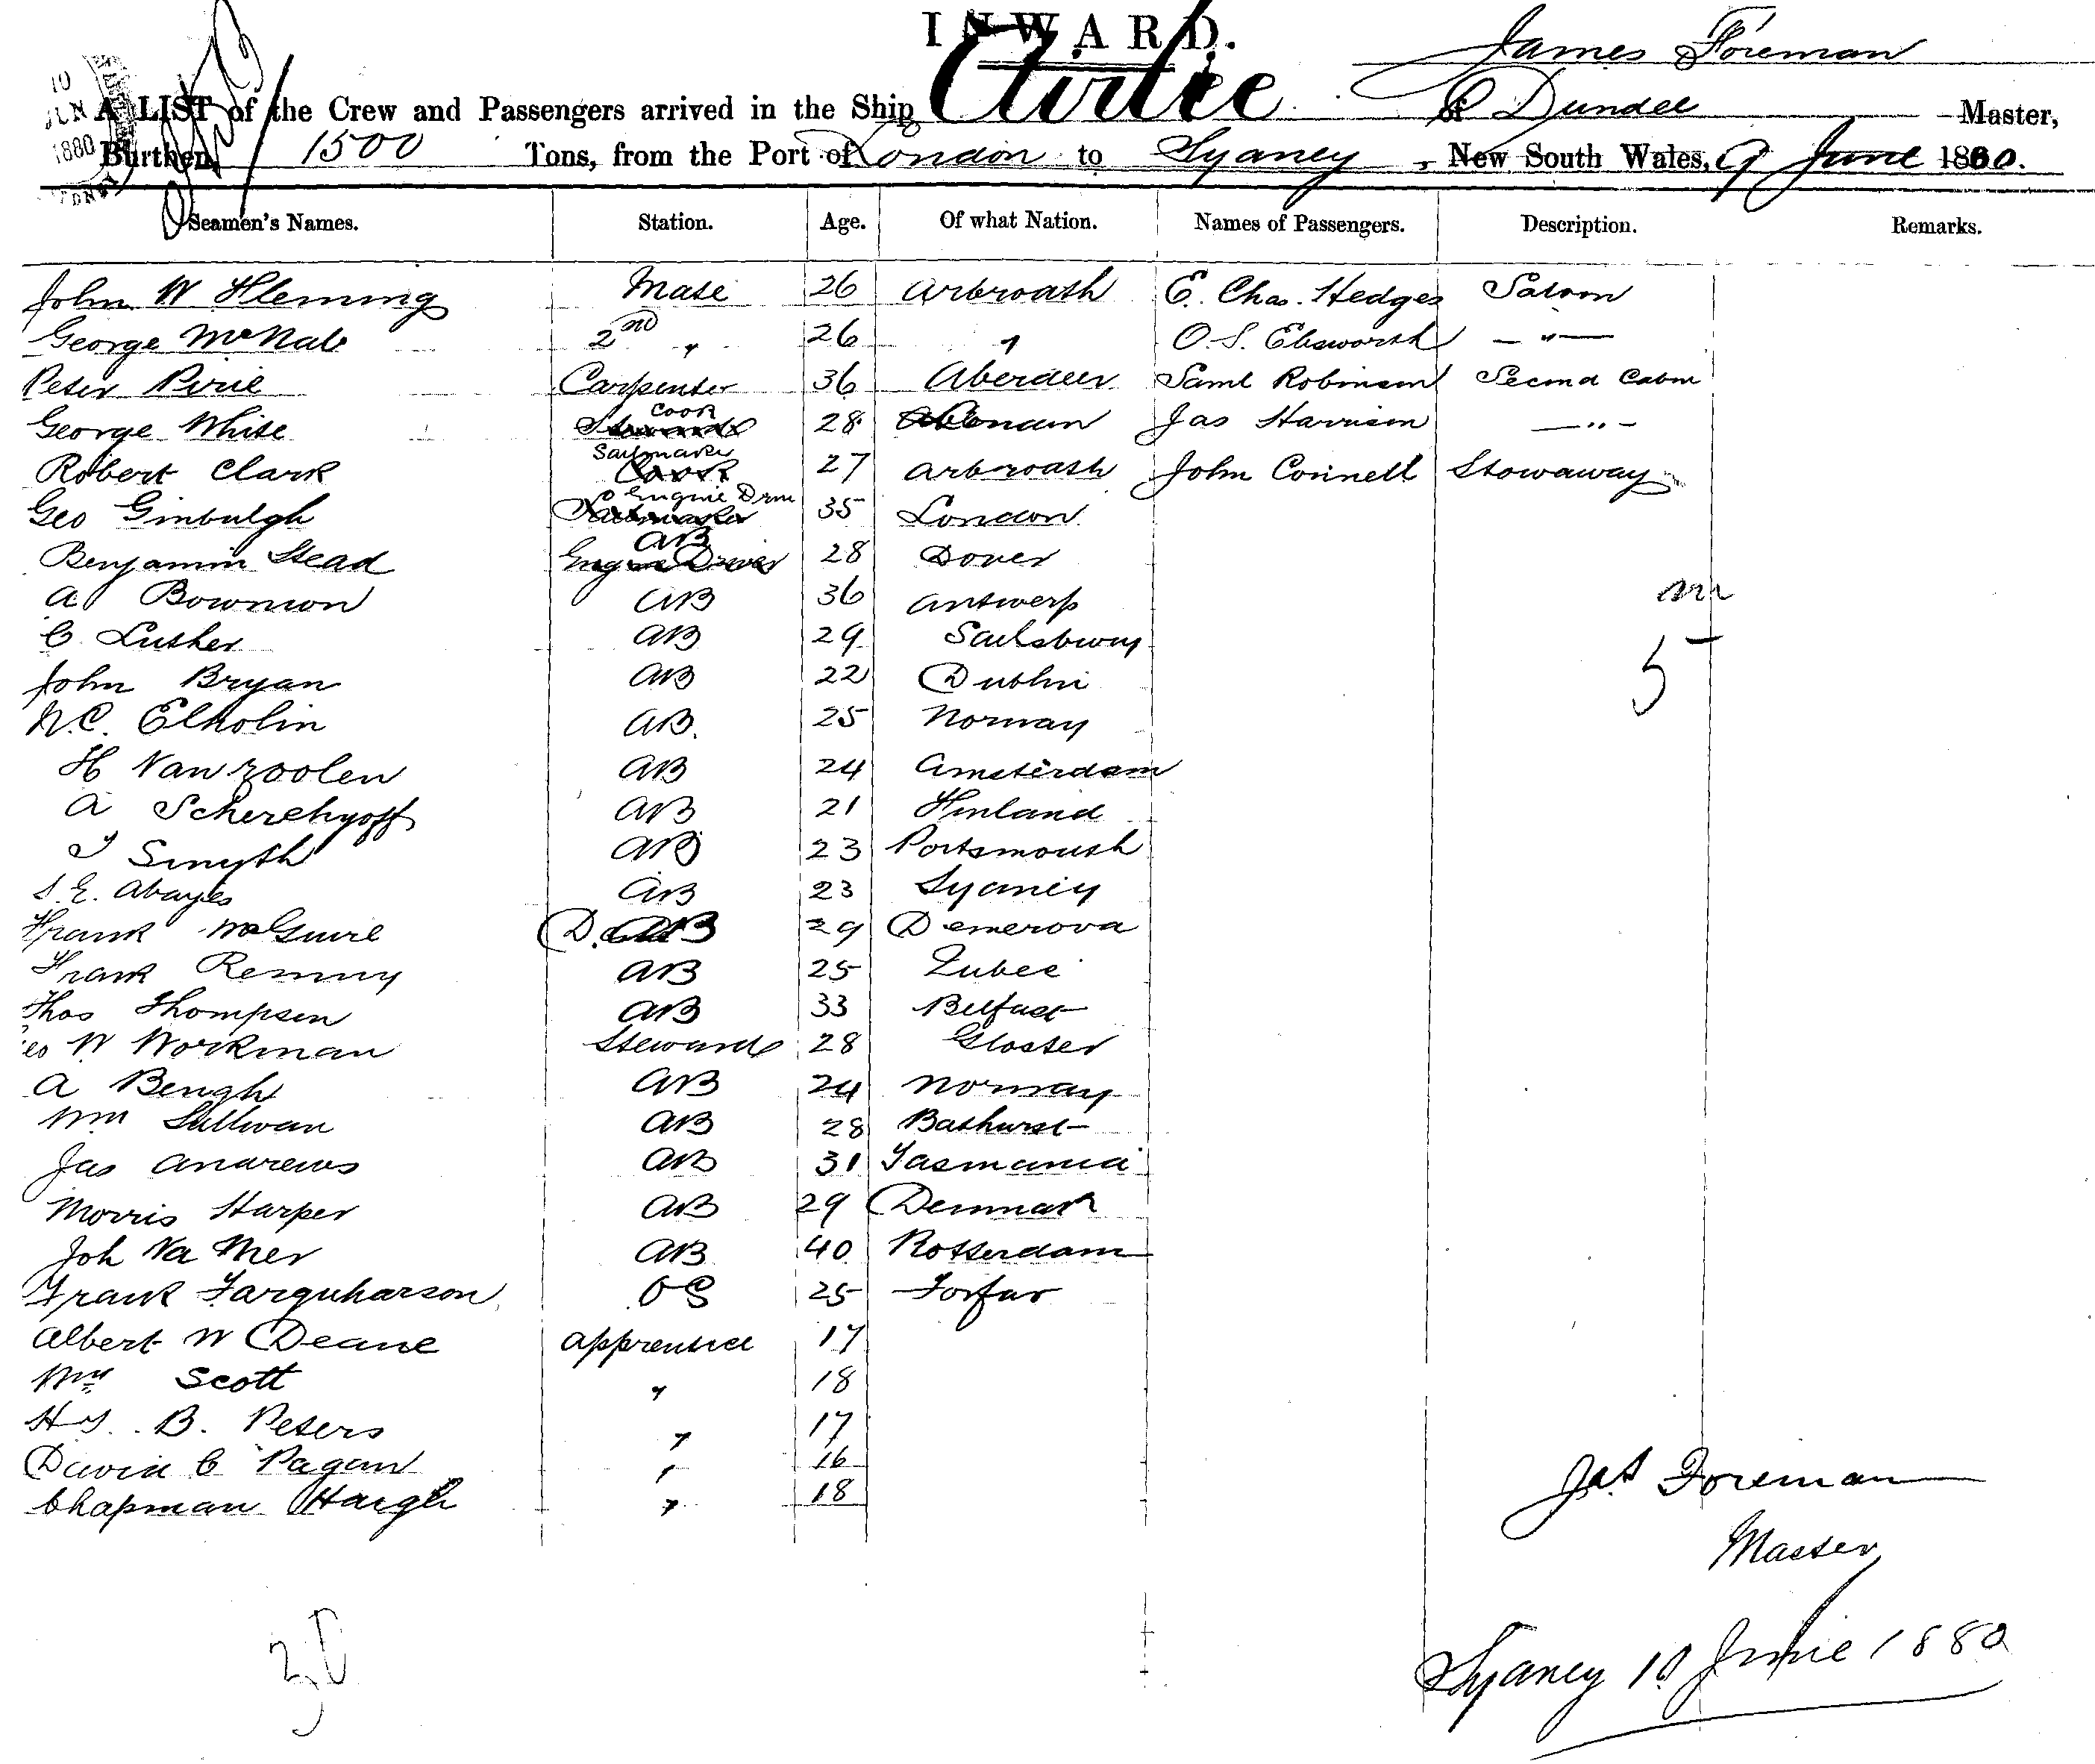 INWARD.
James Foreman
A LIST of the Crew and Passengers arrived in the Ship Airlie of Dundee Master,
Burthen, 1500 Tons, from the Port of London to Sydney, New South Wales, 9 June 1880.
10 JUN 1880
Seamen's Names. Station. Age. Of what Nation. Names of Passengers. Description. Remarks.
John W Fleming Mate 26 Arbroath E. Chas. Hedges Saloon
George McNab 2nd " 26 " O. S. Ebsworth — " —
Peter Pirie Carpenter 36 Aberdeen Saml Robinson Second Cabin
George White Cook 28 Jas Harrison — " —
Robert Clark Sailmaker 27 Arbroath John Connell Stowaway
Geo Ginbulgh 35 London
Benjamin Stead AB 28 Dover
A Bowmon AB 36 Antwerp
C. Luther AB 29 Sailsbury
John Bryan AB 22 Dublin
N.C. Elholin AB. 25 Norway
H Van zoolen AB 24 Amsterdam
A Scherehyoff AB 21 Finland
Smyth AB 23 Portsmouth
S. E. Abayes AB 23 Sydney
Frank McGuire AB 29 Demerova
Frank Remmy AB 25 Lubec
Thos Thompson AB 33 Belfast
W Workman Steward 28 Gloster
A Bengh AB 24 Norway
Wm Sullivan AB 28 Bathurst
Jas Andrews AB 31 Tasmania
Morris Harper AB 29 Denmark
Joh Va Mer AB 40 Rotterdam
Frank Farquharson OS 25 Forfar
Albert W Deane Apprentice 17
Wm Scott " 18
Hy. B. Peters " 17
David C Pagan " 16
Chapman Haigh " 18
5
30
Jas Foreman
Master
Sydney 10 June 1880